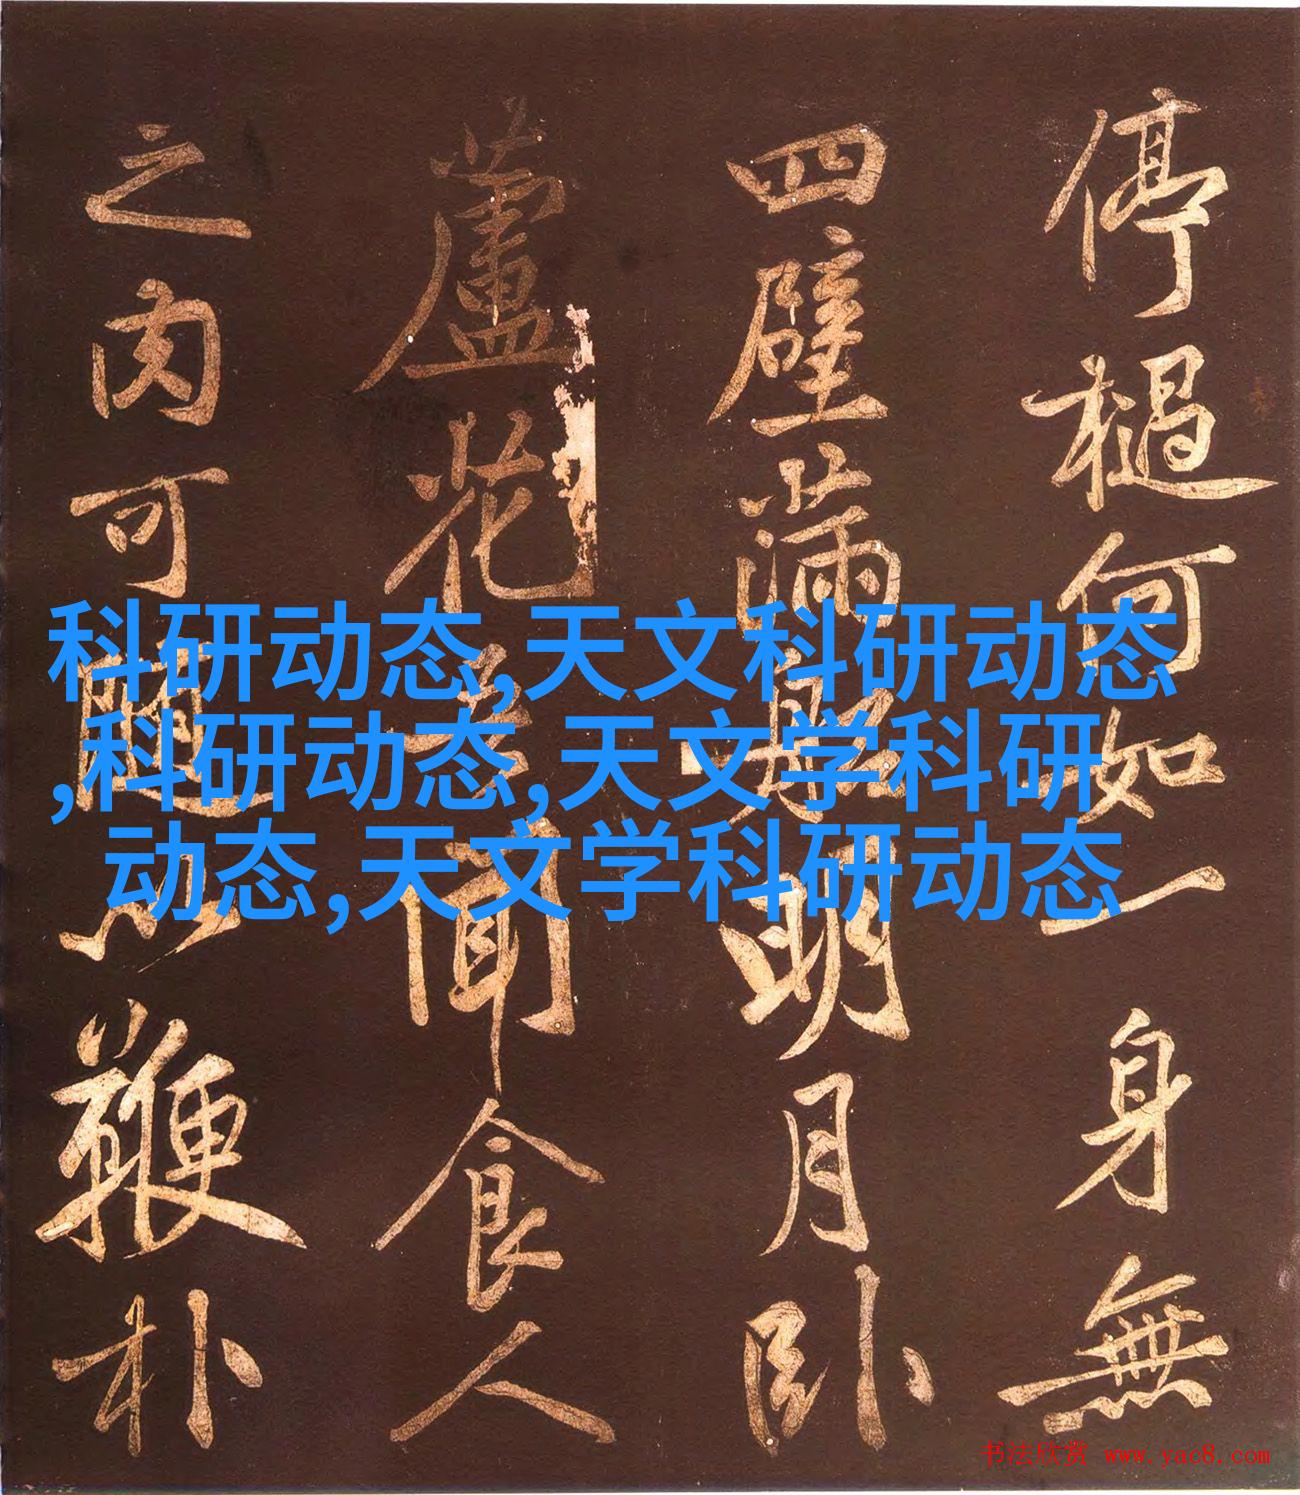 停檛何如一身無
四壁滿船明月臥
蘆花 聞食人
之肉可隨以鞭朴
科研动态,天文科研动态
,科研动态,天文学科研
动态,天文学科研动态
书法欣赏 www.yac8.com